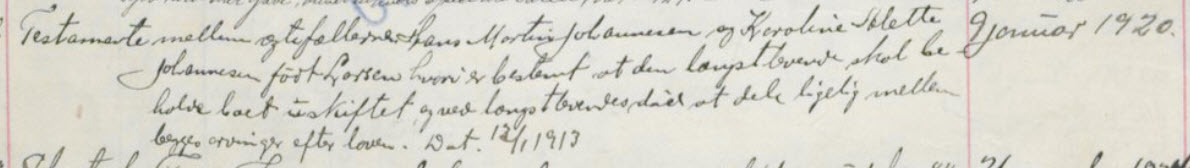 Testamente mellem ægtefællerne Hans Martin Johannesen og Karoline Salette 9 januar 1920.
Johannesen född Larsen hvori er bestemt at den længstlevende skal be
holde boet uskiftet, og ved længstlevendes død at dele ligelig mellem
begges arvinger efter loven. Dat. 12/1 1913